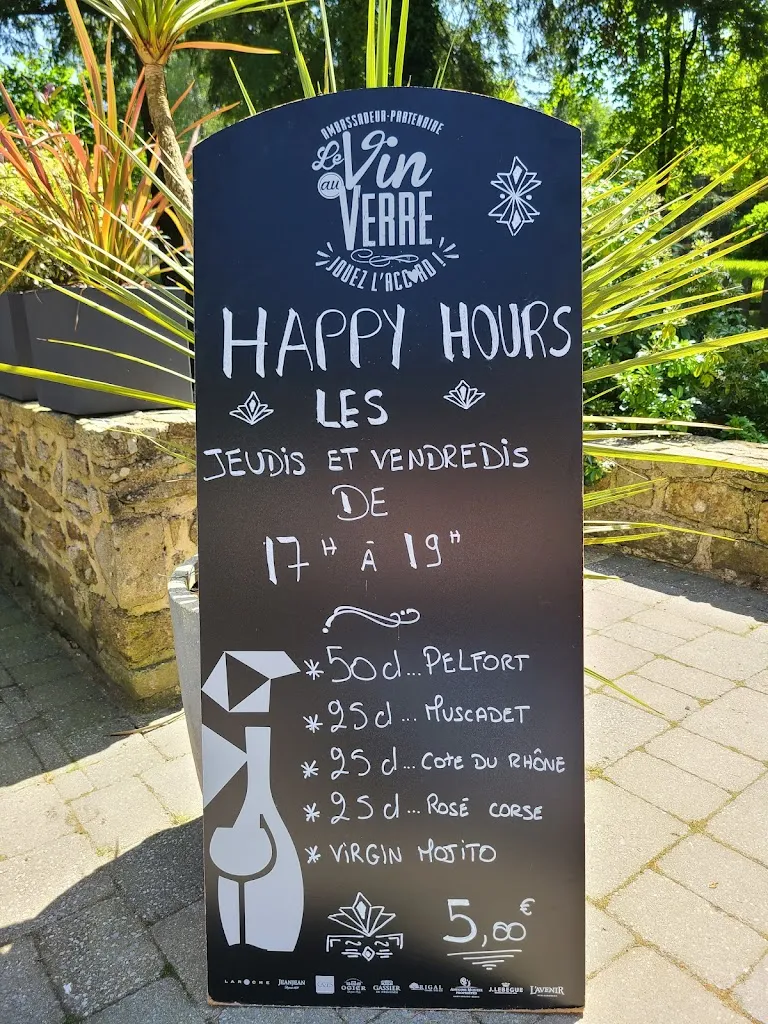 AMBASSADEUR-PARTENAIRE
Le Vin
au
VERRE
JOUEZ L'ACCORD !
HAPPY HOURS
LES
JEUDIS ET VENDREDIS
DE
17H À 19H
* 50 cl... PELFORT
* 25 cl... MUSCADET
* 25 cl... COTE DU RHÔNE
* 25 cl... ROSÉ CORSE
* VIRGIN MOJITO
5,00€
LAROCHE JEANJEAN OGIER GASSIER RIGAL J.LEBEGUE L'AVENIR